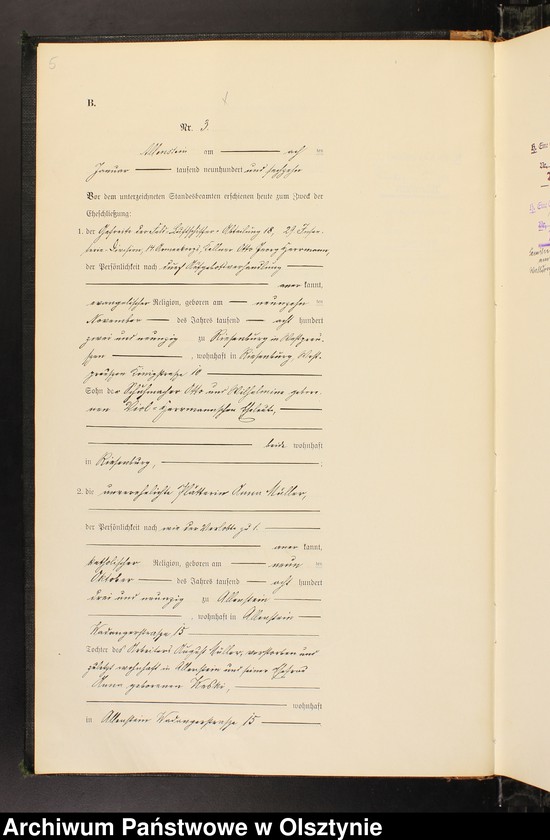 5
B.
Nr. 3.
Allenstein am acht
Januar tausend neunhundert und sechzehn
Vor dem unterzeichneten Standesbeamten erschienen heute zum Zweck der
Eheschließung:
1. der Gefreite der Abteilung 18,
Otto Herrmann,
der Persönlichkeit nach durch Aufgebotsverhandlung
aner kannt,
evangelischer Religion, geboren am neunzehn
November des Jahres tausend acht hundert
zwei und neunzig zu Riesenburg in Westpreu-
ßen, wohnhaft in Riesenburg West-
preußen Königstraße 10
Sohn der Schuhmacher Otto und Wilhelmine gebore-
nen Herrmannschen Eheleute,
beide wohnhaft
in Riesenburg,
2. die unverehelichte Plätterin Anna Müller,
der Persönlichkeit nach wie der Verlobte zu 1.
aner kannt,
katholischer Religion, geboren am neun
Oktober des Jahres tausend acht hundert
drei und neunzig zu Allenstein
, wohnhaft in Allenstein
Wadangerstraße 15
Tochter des Arbeiters August Müller, verstorben und
zuletzt wohnhaft in Allenstein und seiner Ehefrau
Anna geborenen
wohnhaft
in Allenstein Wadangerstraße 15
Archiwum Państwowe w Olsztynie